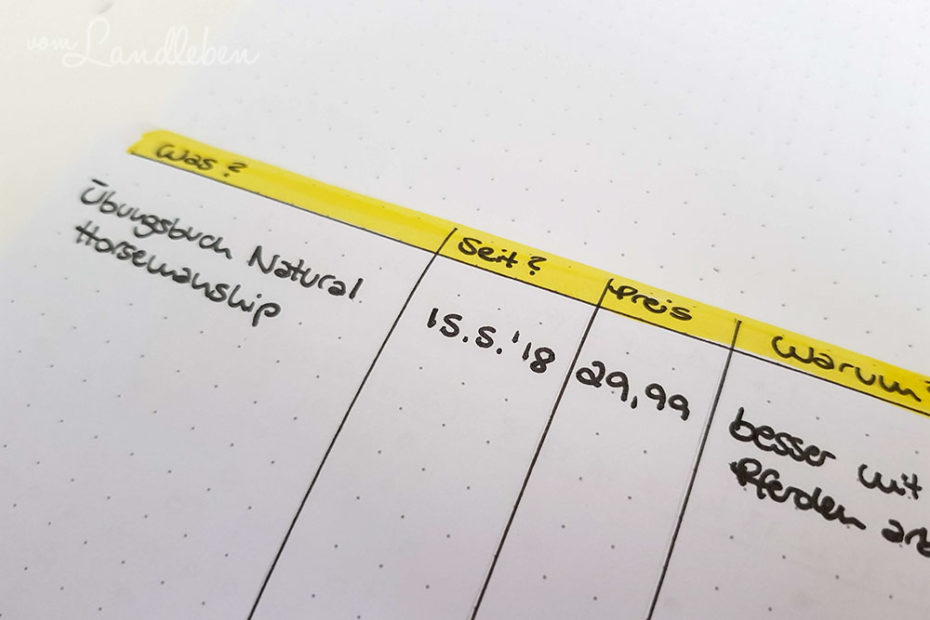 vom Landleben
Was?
Seit?
Preis
Warum?
Übungsbuch Natural
Horsemanship
15.5.'18
29,99
besser mit
Pferden